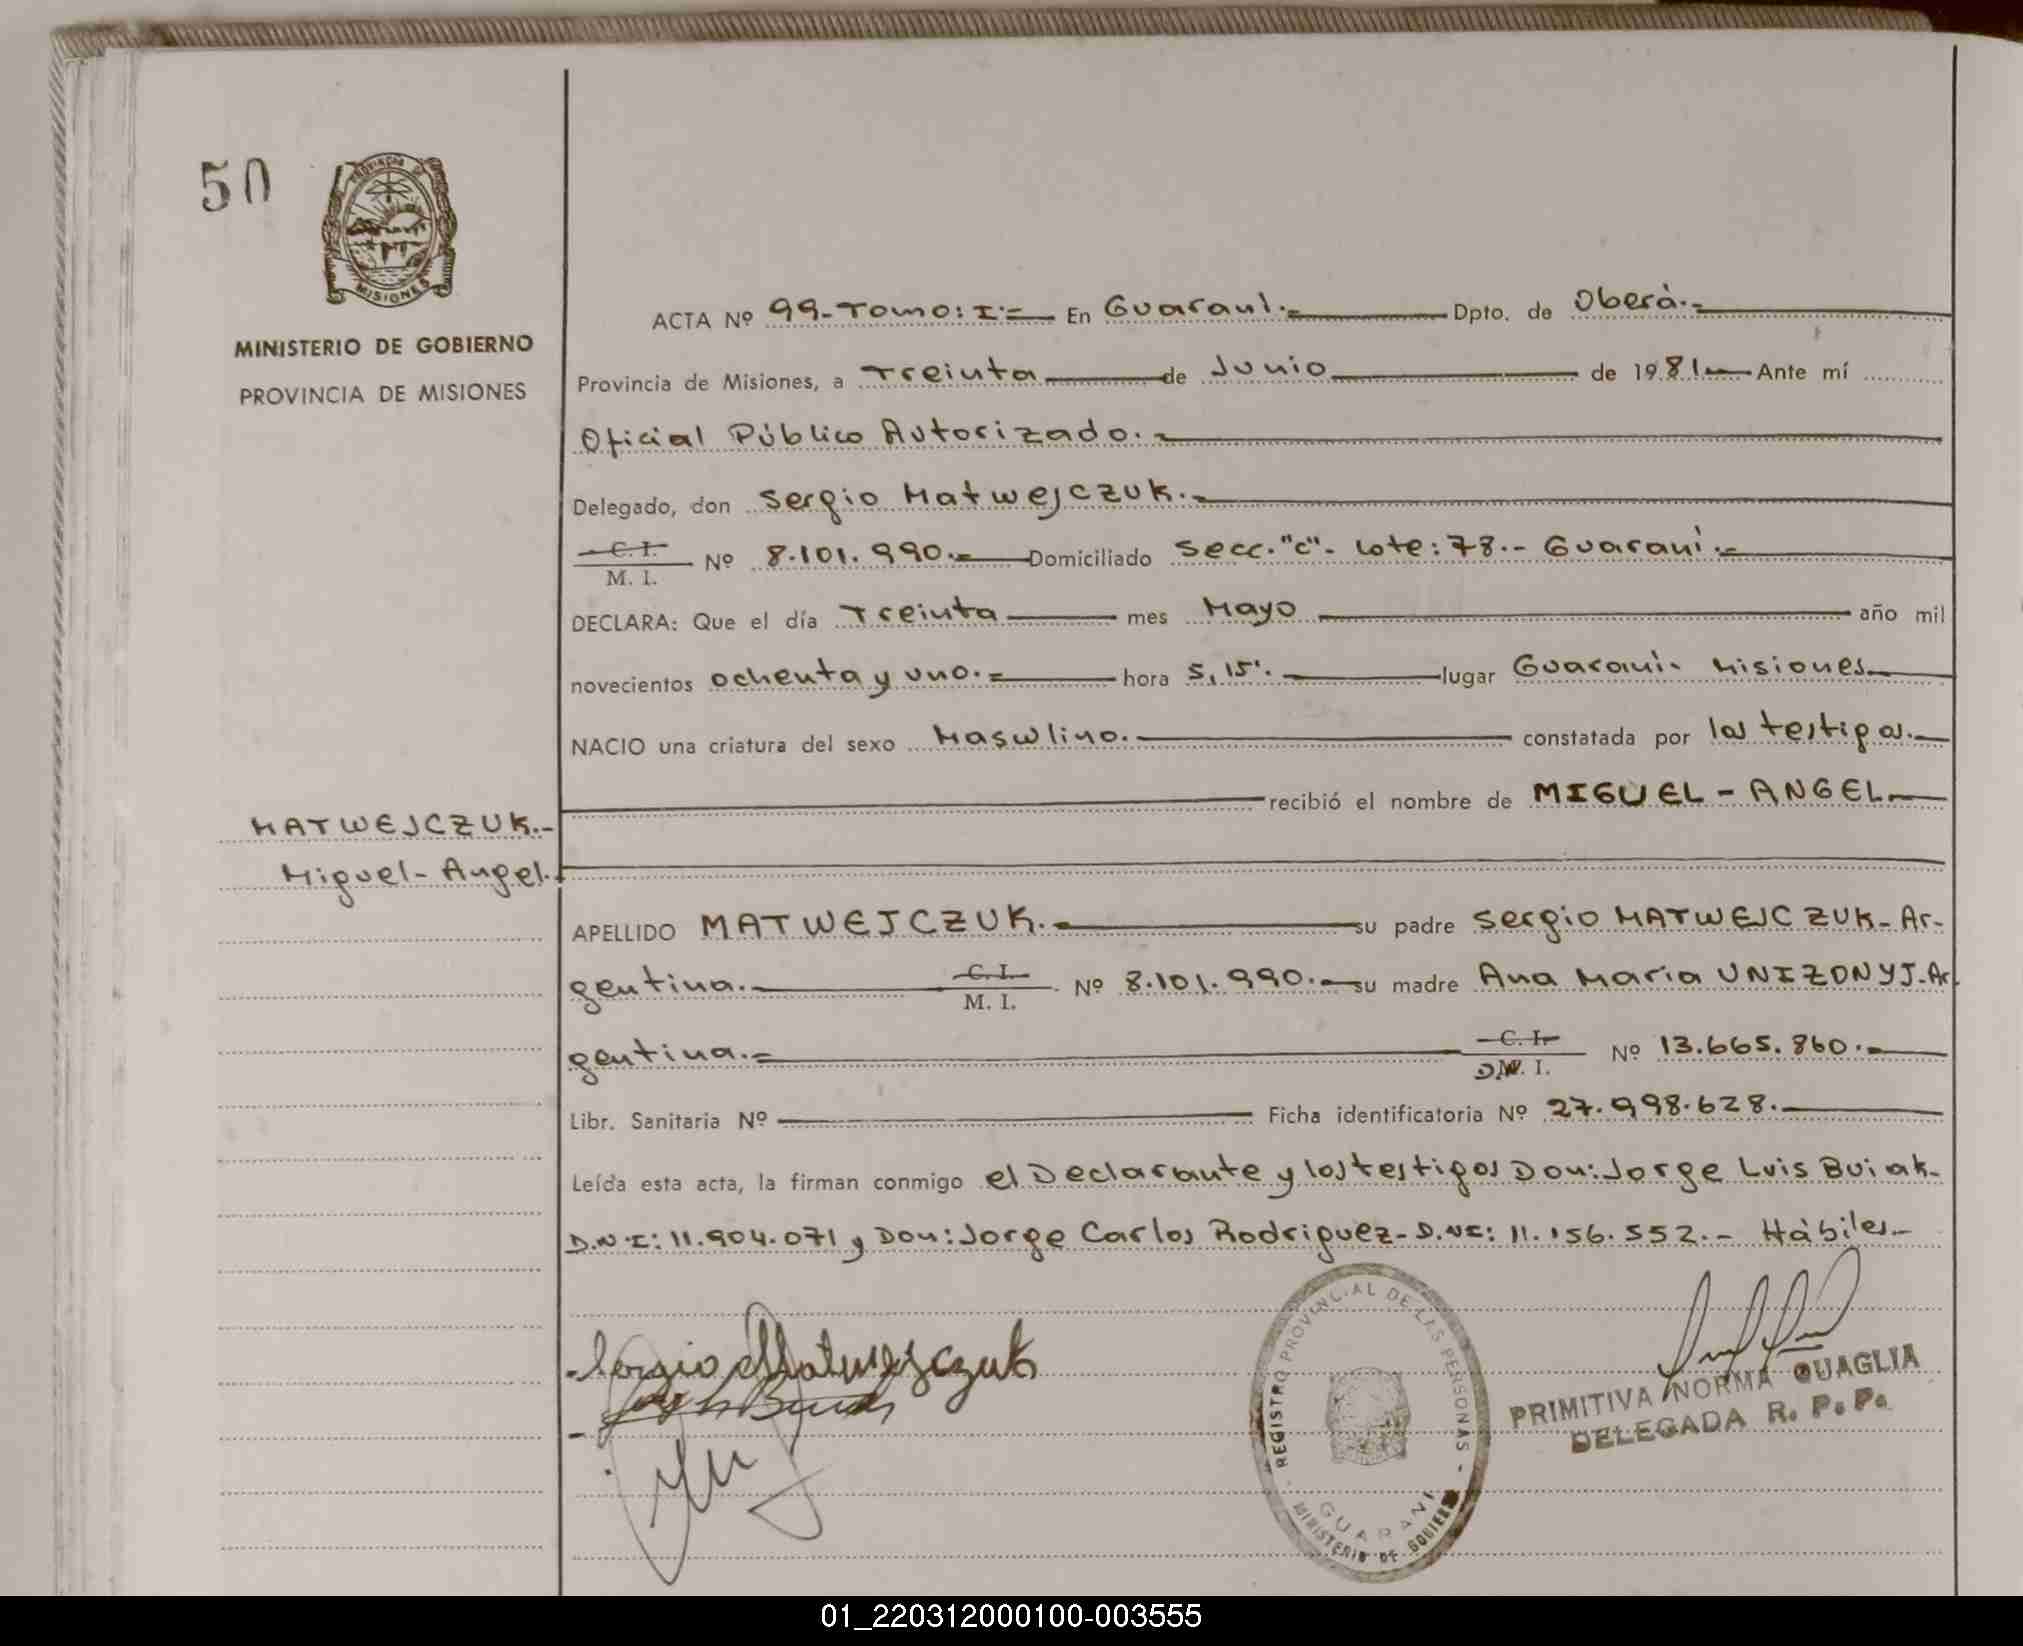 50
PROVINCIA DE
MISIONES
MINISTERIO DE GOBIERNO
PROVINCIA DE MISIONES
ACTA Nº 99-Tomo: I.= En Guaraní.= Dpto. de Oberá.=
Provincia de Misiones, a Treinta de Junio de 1981 Ante mí
Oficial Público Autorizado.=
Delegado, don Sergio Matwejczuk.=
C. I.
M. I. Nº 8.101.990.= Domiciliado Secc. "C"- Lote: 78.- Guaraní.=
DECLARA: Que el día Treinta mes Mayo año mil
novecientos ochenta y uno.= hora 5,15'. lugar Guaraní. Misiones
NACIO una criatura del sexo Masculino. constatada por los testigos.
recibió el nombre de MIGUEL - ANGEL
MATWEJCZUK.-
Miguel- Angel.
APELLIDO MATWEJCZUK.= su padre Sergio MATWEJCZUK- Ar-
gentina. C. I.
M. I. Nº 8.101.990.- su madre Ana María UNIZONYJ-Ar
gentina.= C. I.
D.N. I. Nº 13.665.860.=
Libr. Sanitaria Nº Ficha identificatoria Nº 27.998.628.
Leída esta acta, la firman conmigo el Declarante y los testigos Don: Jorge Luis Buiak-
D.N.I: 11.904.071 y Don: Jorge Carlos Rodriguez- D.NI: 11.156.552.- Hábiles.-
Sergio Matwejczuk
REGISTRO PROVINCIAL DE LAS PERSONAS
GUARANI
MINISTERIO DE GOBIERNO
PRIMITIVA NORMA QUAGLIA
DELEGADA R. P. P.
01_220312000100-003555